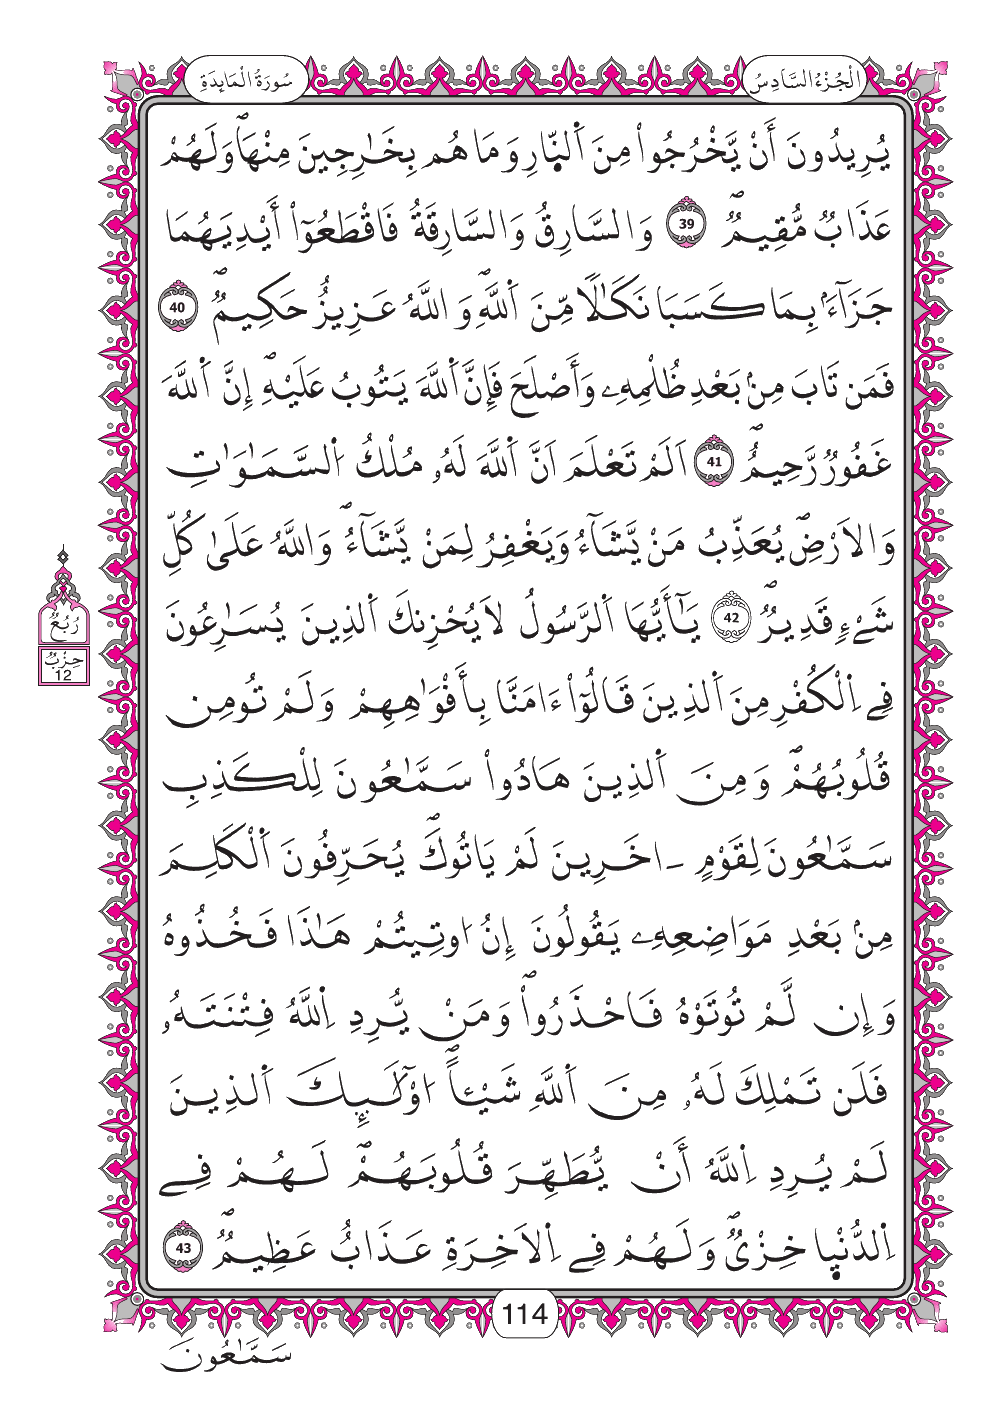 الْجُزْءُ السَّادِسُ
سُورَةُ الْمَائِدَةِ
يُرِيدُونَ أَنْ يَّخْرُجُواْ مِنَ اَ۬لنّ۪ارِ وَمَا هُم بِخَٰرِجِينَ مِنْهَاۖ وَلَهُمْ
عَذَابٞ مُّقِيمٞۖ 39 وَالسَّارِقُ وَالسَّارِقَةُ فَاقْطَعُوٓاْ أَيْدِيَهُمَا
جَزَآءَۢ بِمَا كَسَبَا نَكَٰلاٗ مِّنَ اَ۬للَّهِۖ وَاللَّهُ عَزِيزٌ حَكِيمٞۖ 40
فَمَن تَابَ مِنۢ بَعْدِ ظُلْمِهِۦ وَأَصْلَحَ فَإِنَّ اَ۬للَّهَ يَتُوبُ عَلَيْهِۖ إِنَّ اَ۬للَّهَ
غَفُورٞ رَّحِيمٌۖ 41 اَلَمْ تَعْلَمَ اَنَّ اَ۬للَّهَ لَهُۥ مُلْكُ اُ۬لسَّمَٰوَٰتِ
وَالَارْضِۖ يُعَذِّبُ مَنْ يَّشَآءُ وَيَغْفِرُ لِمَنْ يَّشَآءُۖ وَاللَّهُ عَلَىٰ كُلِّ
شَےْءٖ قَدِيرٞۖ 42 يَٰٓأَيُّهَا اَ۬لرَّسُولُ لَا يُحْزِنكَ اَ۬لذِينَ يُسَٰرِعُونَ
فِے اِ۬لْكُفْرِ مِنَ اَ۬لذِينَ قَالُوٓاْ ءَامَنَّا بِأَفْوَٰهِهِمْ وَلَمْ تُومِن
قُلُوبُهُمْۖ وَمِنَ اَ۬لذِينَ هَادُواْ سَمَّٰعُونَ لِلْكَذِبِ
سَمَّٰعُونَ لِقَوْمٍ ـ اخَرِينَ لَمْ يَاتُوكَۖ يُحَرِّفُونَ اَ۬لْكَلِمَ
مِنۢ بَعْدِ مَوَاضِعِهِۦ يَقُولُونَ إِنُ اوتِيتُمْ هَٰذَا فَخُذُوهُ
وَإِن لَّمْ تُوتَوْهُ فَاحْذَرُواْۖ وَمَنْ يُّرِدِ اِ۬للَّهُ فِتْنَتَهُۥ
فَلَن تَمْلِكَ لَهُۥ مِنَ اَ۬للَّهِ شَيْـٔاًۖ اوْلَٰٓئِكَ اَ۬لذِينَ
لَمْ يُرِدِ اِ۬للَّهُ أَنْ يُّطَهِّرَ قُلُوبَهُمْۖ لَهُمْ فِے
اِ۬لدُّنْي۪ا خِزْيٞۖ وَلَهُمْ فِے اِ۬لَاخِرَةِ عَذَابٌ عَظِيمٞۖ 43
رُبُعُ
حِزْبُ
12
114
سَمَّٰعُونَ